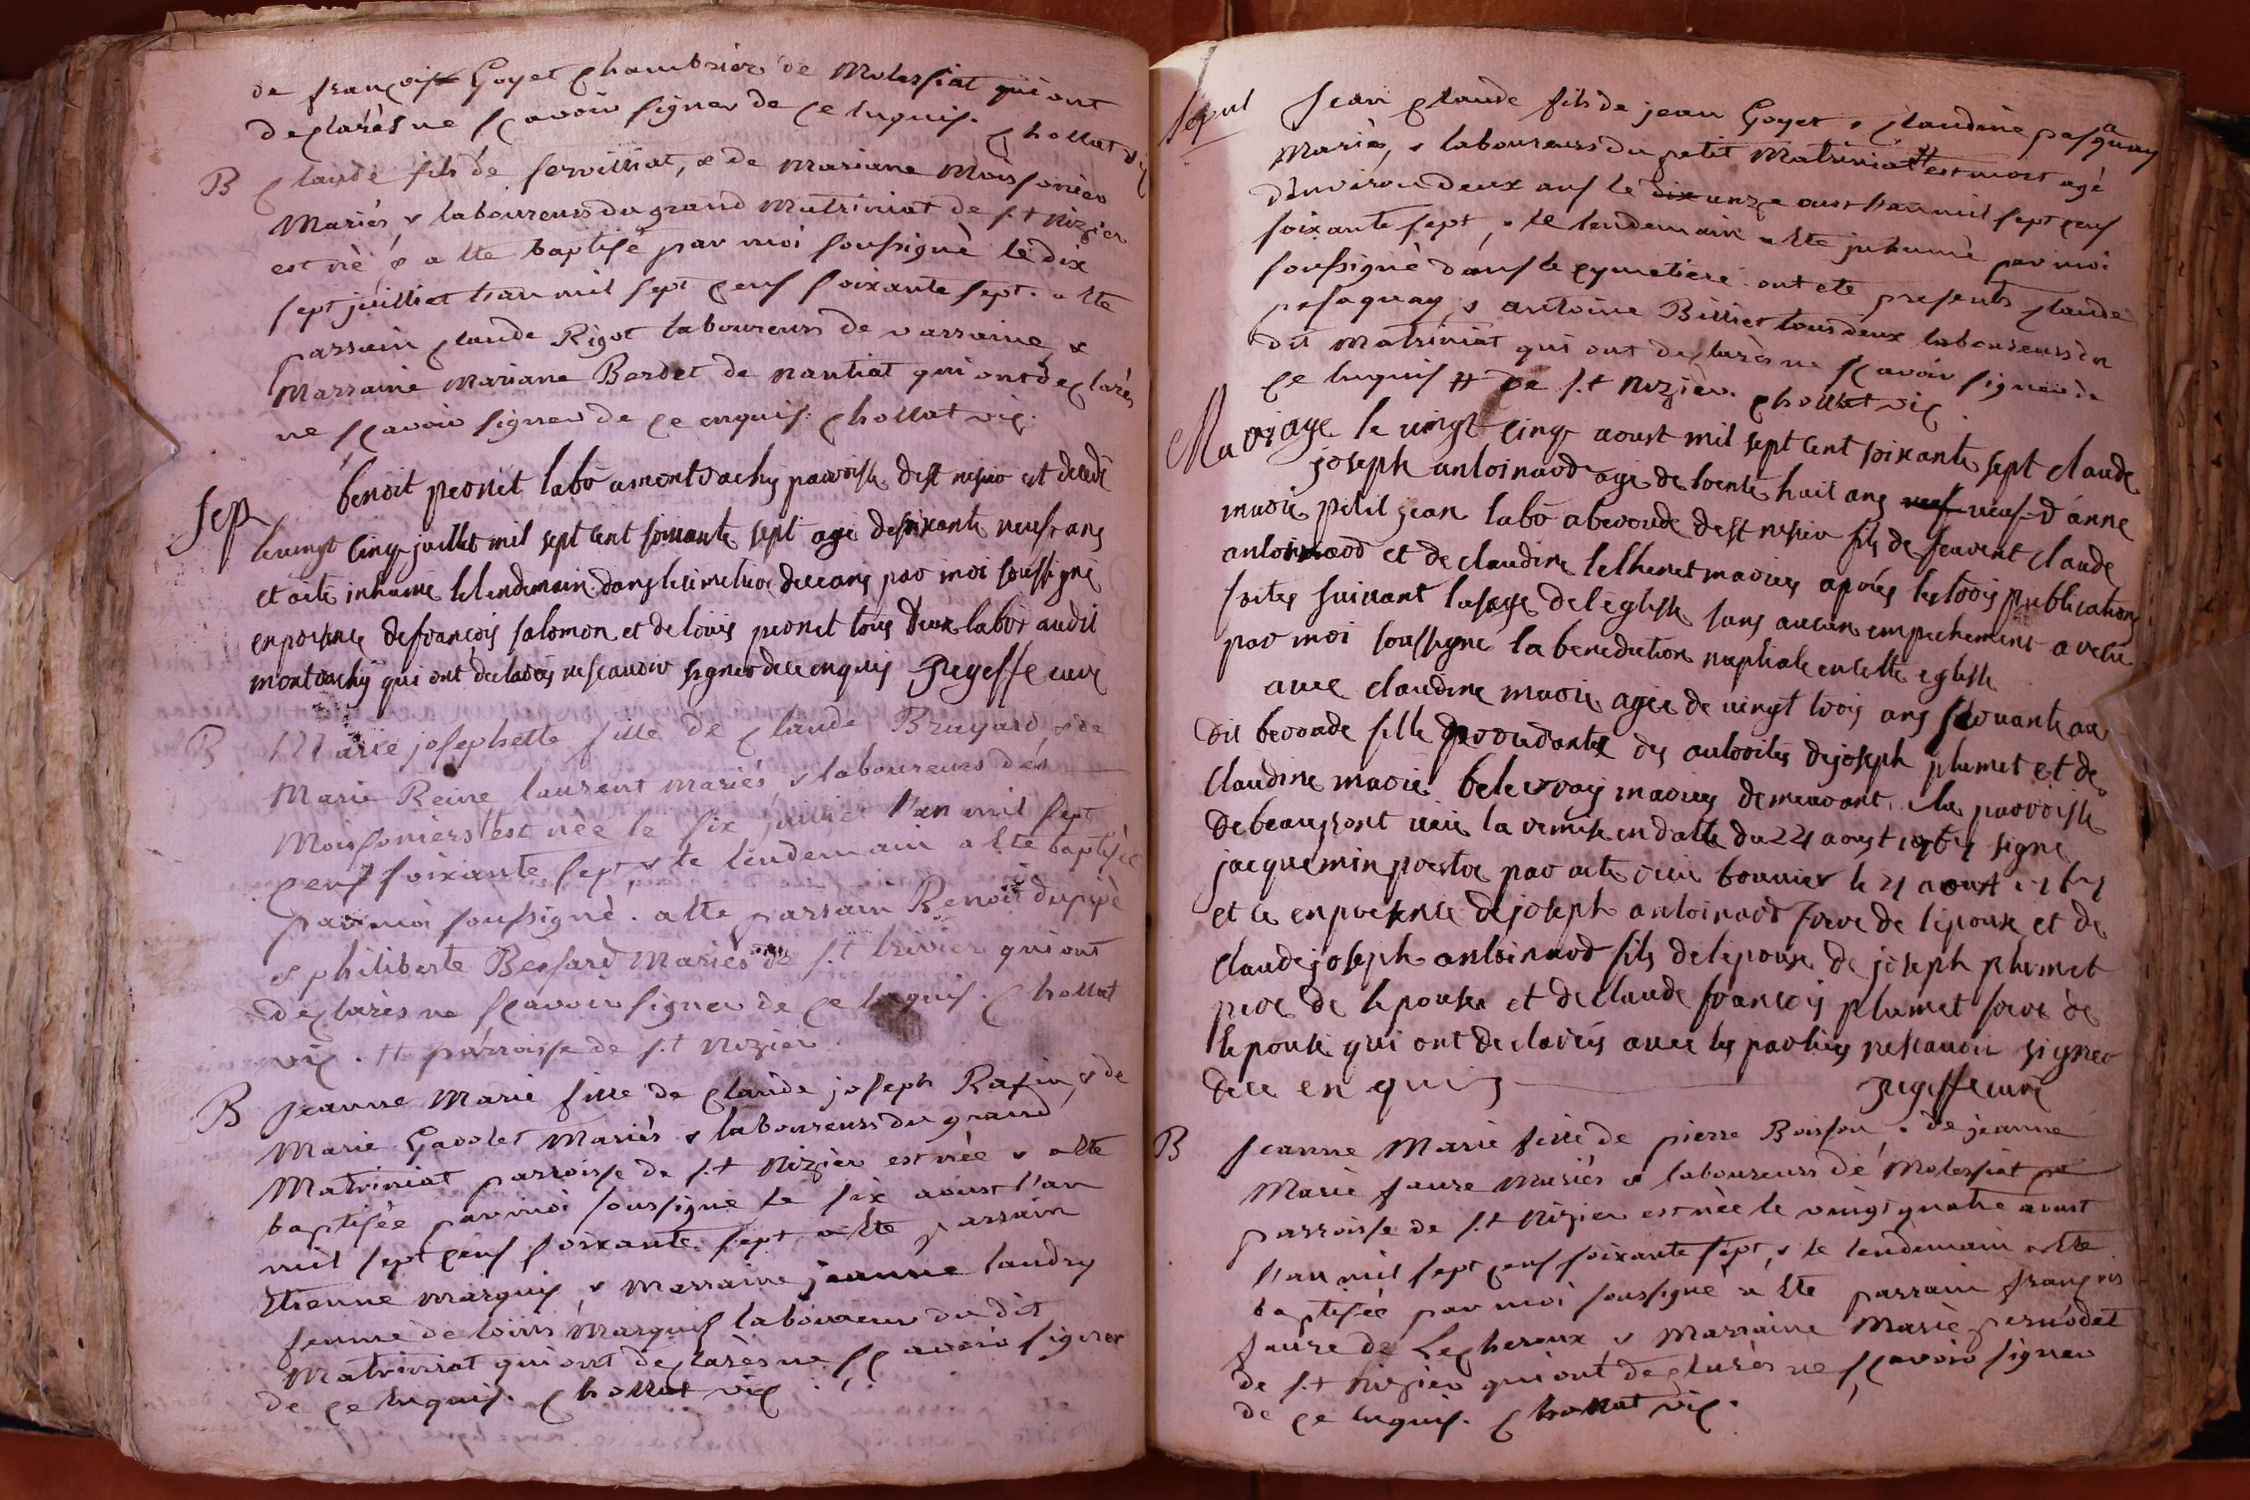 de françois Goyet chambrier de Molessiat qui ont
declarés ne sçavoir signer de ce enquis. chollat vic
B claude fils de servilliat, & de Mariane Moissonier
Mariés, & laboureurs du grand Matriniat de s.t Nizier
est né & a ete baptisé par moi soussigné le dix
sept juilliet l'an mil sept cens soixante sept. a ete
parrain claude Rigot laboureurs de varraine &
Marraine Mariane Berdet de nantiat qui ont declarés
ne sçavoir signer de ce enquis. chollat vic.
sep benoit peonet labo a montrachy parroisse de st nisier est decedé
le vingt cinq juillet mil sept cent soixante sept agé de soixante neuf ans
et a ete inhumé le lendemain dans le cimetiere de ceans par moi soussigné
en presence de françois salomon et de loüis peonet tous deux labor audit
montrachy qui ont declarés ne scavoir signer de ce enquis curé
B Marie josephette fille de claude Brugard & de
Marie Reine laurent mariés, & laboureurs dés
Moissoniers # est née le six juillet l'an mil sept
cens soixante sept & le lendemain a ete baptisée
par moi soussigné. a ete parrain Benoit dupré
& philiberte Bessard Mariés de s.t trivier qui ont
declarés ne sçavoir signer de ce enquis. chollat
vic. # parroisse de s.t Nizier.
B Jeanne Marie fille de claude joseph Rafin, & de
Marie Gavolet Mariés & laboureurs du grand
Matriniat parroisse de s.t Nizier est née & a ete
baptisée par moi soussigné le six aoust l'an
mil sept cens soixante sept a ete parrain
Etienne Marquis, & Marraine jeanne landry
femme de loüis Marquis laboureur du dit
Matriniat qui ont declarés ne sçavoir signer
de ce enquis. chollat vic
sepul Jean claude fils de jean Goyet & claudine pesaquay
Mariés, & laboureurs du petit Matriniat # est mort agé
d'environ deux ans le dix unze aoust l'an mil sept cens
soixante sept, & le lendemain a ete inhumé par moi
soussigné dans le cymetiere. ont ete presents claude
pesaquay, & antoine Billiet tous deux laboureurs en
dit Matriniat qui ont declarés ne sçavoir signer de
ce enquis # de s.t Nizier. chollat vic.
Mariage le vingt cinq aoust mil sept cent soixante sept claude
joseph antoinard agé de trente huit ans veuf veuf d'anne
marie petit jean labo a beroude de st nisier fils de feu vent claude
antoinard et de claudine mariés aprés les trois publications
faites suivant lusage de l'église sans aucun empechement a recu
par moi soussigné la benediction nuptiale en cette eglise
avec claudine marie agée de vingt trois ans
dit beroude fille procedante des autorités de joseph plumet et de
claudine marie mariés demeurant a la parroisse
de beaupont vüe la remise en datte du 24 aoust 1767 signé
jacquemin prestre par acte bouvier le 21 aoust 1767
et ce en presence de joseph antoinard frere de l'epoux et de
claude joseph antoinard fils de l'epoux de joseph plumet
pere de lepouse et de claude françois plumet frere de
lepouse qui ont declarés avec les parties ne scavoir signer
de ce enquis curé
B Jeanne Marie fille de pierre Boisson, & de jeanne
Marie faure Mariés & laboureurs dé Molessiat pa
parroisse de s.t Nizier est née le vingt quatre aoust
l'an mil sept cens soixante sept, & le lendemain a ete
baptisée par moi soussigné a ete parrain françois
faure de Lecheroux & Marraine Marie pernodet
de s.t Nizier qui ont declarés ne sçavoir signer
de ce enquis. chollat vic.